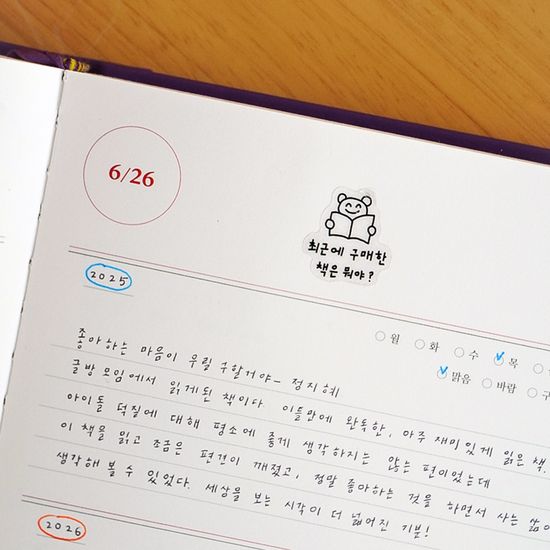 6/26
최근에 구매한
책은 뭐야?
2025
월 화 수 목
맑음 바람 구
좋아하는 마음이 우릴 구할거야 - 정지혜
글방 모임에서 읽게된 책이다. 이틀만에 완독한, 아주 재미있게 읽은 책.
아이돌 덕질에 대해 평소에 좋게 생각하지는 않는 편이었는데
이 책을 읽고 조금은 편견이 깨졌고, 정말 좋아하는 것을 하면서 사는 삶
생각해 볼 수 있었다. 세상을 보는 시각이 더 넓어진 기분!
2026